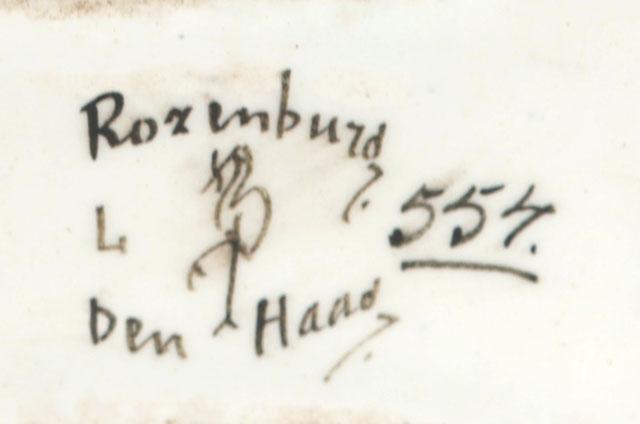 Rozenburg
L
Den Haag
554.